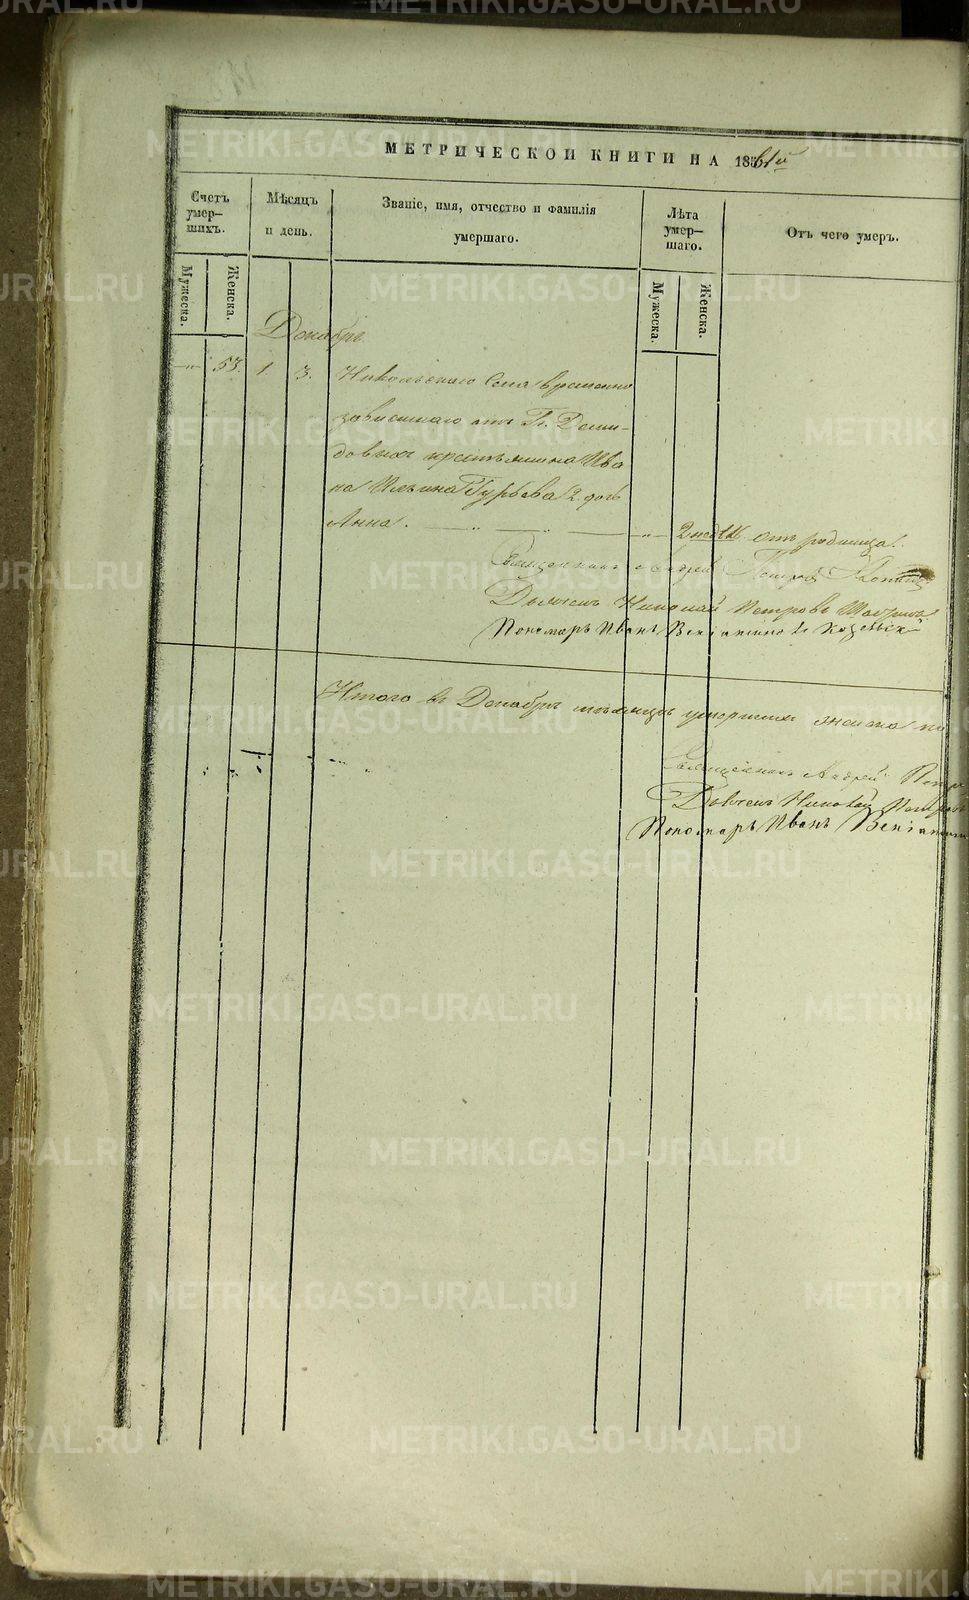 МЕТРИЧЕСКОИ КНИГИ НА 1861й
Счетъ умер-шихъ.
Мѣсяцъ и день.
Званіе, имя, отчество и фамилія умершаго.
Лѣта умер-шаго.
Отъ чего умеръ.
Мужеска.
Женска.
Мужеска.
Женска.
Декабрь
53. 1. 3. Никольскаго села временно
зависимаго отъ Гг. Деми-
довыхъ крестьянина Ива
на Ильина Гурьева 2. дочь
Анна. 2 недѣл. отъ родимца.
Священникъ Андрей
Дьяконъ Николай Петровъ
Пономарь Иванъ
Итого въ Декабрѣ мѣсяцѣ умершихъ женска по
Священникъ Андрей Петро
Дьяконъ Николай Петровъ
Пономарь Иванъ
METRIKI.GASO-URAL.RU